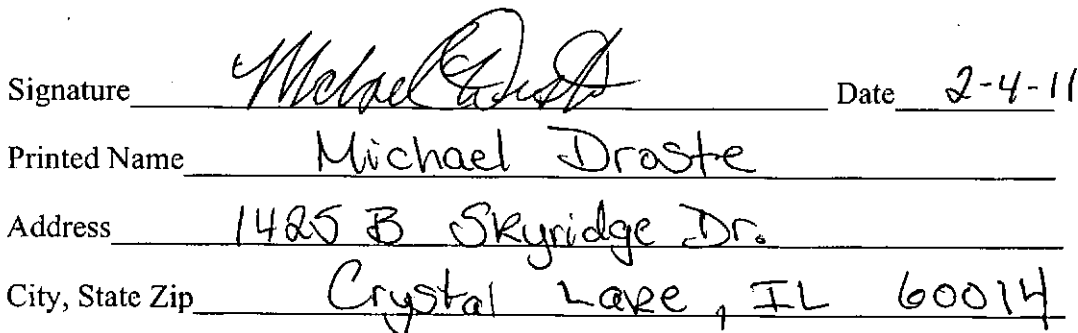 Signature Michael Droste Date 2-4-11
Printed Name Michael Droste
Address 1425 B Skyridge Dr.
City, State Zip Crystal Lake, IL 60014